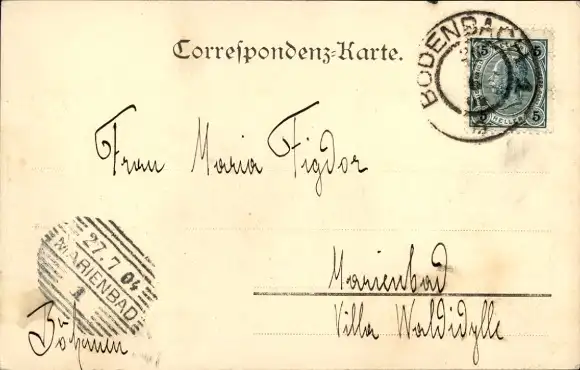 Correspondenz-Karte.
BODENBACH
5 5
5 5
HELLER
Frau Maria Figdor
27.7 04
MARIENBAD
1
Marienbad
Villa Waldidylle
Böhmen